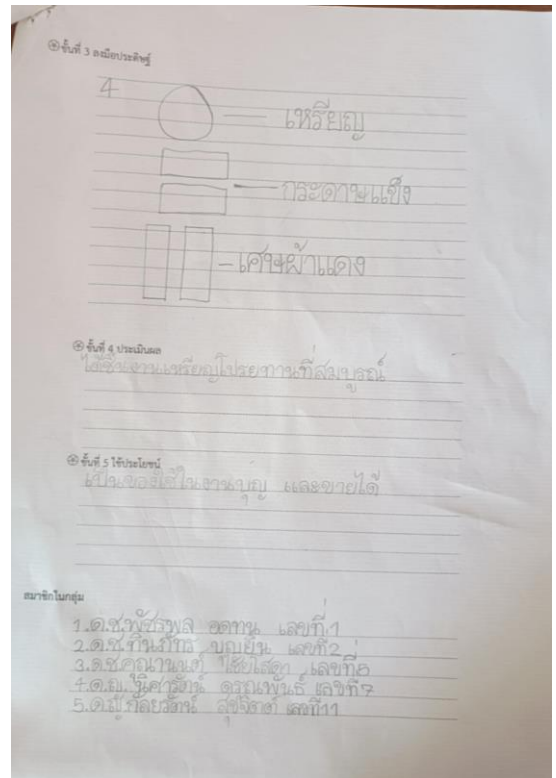 ขั้นที่ 3 ลงมือประดิษฐ์
4
เหรียญ
กระดาษแข็ง
เศษผ้าแดง
ขั้นที่ 4 ประเมินผล
ได้ชิ้นงานเหรียญโปรยทานที่สมบูรณ์
ขั้นที่ 5 ใช้ประโยชน์
เป็นของใช้ในงานบุญ และขายได้
สมาชิกในกลุ่ม
1.ด.ช.พัชรพล อดทน เลขที่ 1
2.ด.ช. บุญยืน เลขที่ 2
3.ด.ช.คุณานนต์ เลขที่
4.ด.ญ. เลขที่ 7
5.ด.ญ. สุขจิตต์ เลขที่ 11